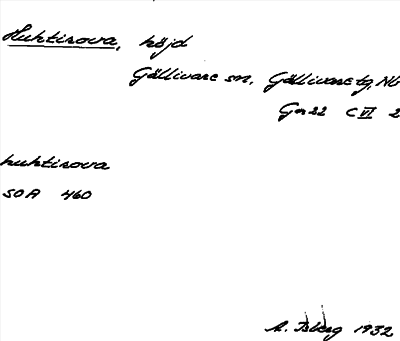 Huhtirova, höjd
Gällivare sn, Gällivare tg, Nb
Gn 22 C VI 2
huhtirova
SOA 460
1932